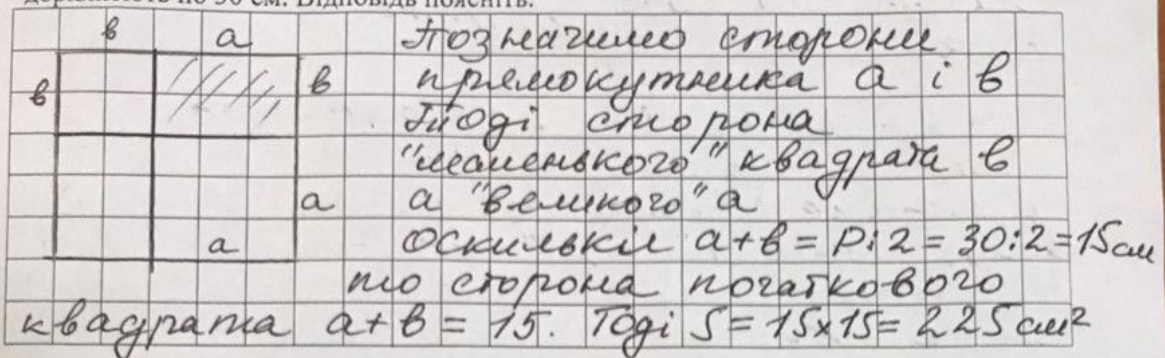 дорівнюють по 30 см. Відповідь поясніть.
в а Позначимо сторони
в в прямокутника а і в
Тоді сторона
"маленького" квадрата в
а а "великого" а
а Оскилькіи а+в = Р:2 = 30:2=15см
то сторона початкового
квадрата а+в = 15. Тоді S = 15x15= 225 см²